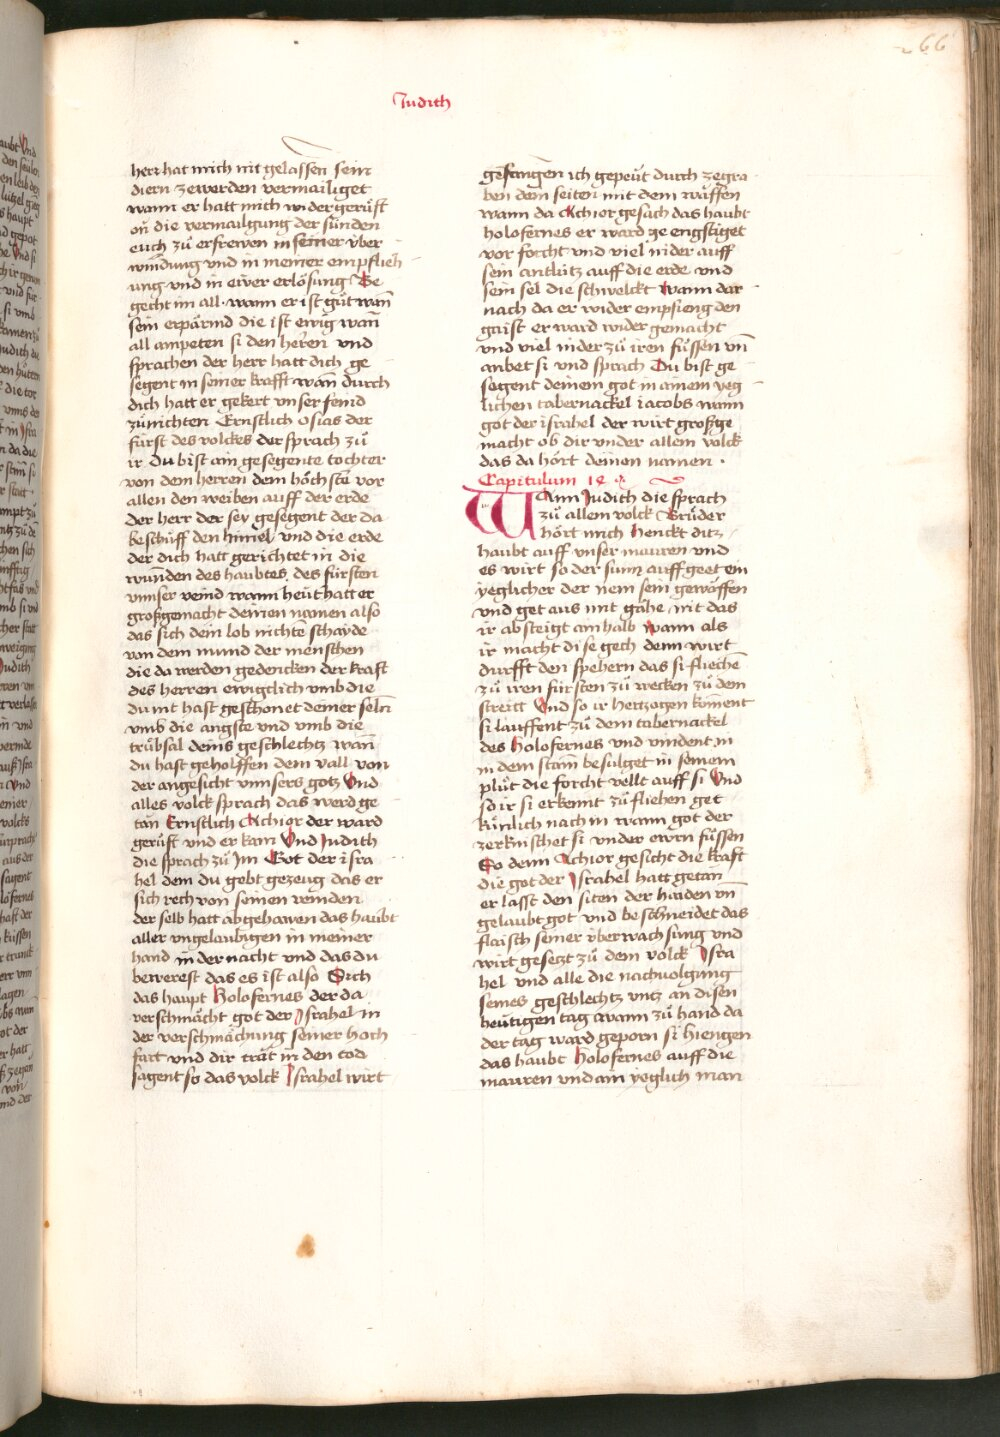 266
Judith
herr hat mich nit gelassen sein
diern zewerden vermailiget
wann er hatt mich wider gerůfft
on̄ die vermailgung der sünden
euch zů erfrewen in seiner über
windung vnd in meiner empflieh
ung vnd in eiver erlösung Be
gecht im all wann er ist gůt wan̄
sein erpärmd die ist ewig wan̄
all ampeten si den heren vnd
sprachen der herr hatt dich ge
segent in seiner krafft wan̄ durch
dich hatt er gekert vnser feind
zů nichten Ernstlich Osias der
fürst des volckes der sprach zů
ir Du bist ain gesegente tochter
von dem herren dem höchsten vor
allen den weiben auff der erde
der herr der sey gesegent der da
beschůff den himel vnd die erde
der dich hatt gerichtet in die
wunden des haubtes des fürsten
vnnser veind wann heüt hatt er
großgemacht deinen namen also
das sich dein lob nichte schayde
von dem mund der menschen
die da werden gedencken der kraft
des herren ewigclich vmb die
du nit hast geschonet deiner seln̄
vmb die angste vnd vmb die
trůbsal deins geschlechtz wan̄
du hast geholffen dem vall von
der angesicht vnnsers gotz Vnd
alles volck sprach das werd ge
tan Ernstlich Achior der ward
gerůft vnd er kam Vnd Judith
die sprach zů Im Got der isra
hel dem du gebt gezeug das er
sich rech von seinen veinden
der selb hatt abgehawen das haubt
aller vngelaubigen in meiner
hand in der nacht vnd das du
bewerest das es ist also Sich
das haupt Holofernes der da
verschmächt got der Israhel in
der verschmächung seiner hoch
fart vnd dir trät in den tod
sagent so das volck Israhel wirt
gefanngen ich gepeüt durch zegra
ben dein seiten mit dem wäffen
wann da Achior gesach das haubt
holofernes er ward ge engstiget
vor forcht vnd viel nider auff
sein antlütz auff die erde vnd
sein sel die schwelckt Wann dar
nach da er wider empfieng den
gaist er ward wider gemacht
vnd viel nider zů iren füssen vn̄
anbet si vnd sprach Du bist ge
segent deinem got in ainem yeg
lichen tabernackel iacobs wann
got der israhel der wirt großge
macht ob dir vnder allem volck
das da hört deinen namen
Capitulum 14
WAnn Judith die sprach
zů allem volck Brüder
hört mich Henckt ditz
haubt auff vnser mauren vnd
es wirt so der sunn auff geet ein
yeglicher der nem sein gewäffen
vnd get aus mit gähe nit das
ir absteigt ainhalb Wann als
ir macht dise gech denn wirt
durfft den spehern das si flieche
zů iren fürsten zů wecken zů dem
streitt Vnd so ir hertzogen koment
si lauffent zů dem tabernackel
des Holofernes vnd vindent in
in dem stam̄ besülget in seinem
plůt die forcht vellt auff si Vnd
so ir si erkennt zů fliehen get
künlich nach in wann got der
zerknischet si vnder ewrn füssen
So denn Achior gesicht die kraft
die got der Israhel hatt getan
er lasst den siten der haiden vn̄
gelaubt got vnd beschneidet das
flaisch seiner überwachsung vnd
wirt gesetzt zů dem volck Isra
hel vnd alle die nachuolgung
seines geschlechtz vntz an disen
heütigen tag wann zů hand da
der tag ward geporn si hiengen
das haubt Holofernes auff die
mauren vnd ain yeglich man